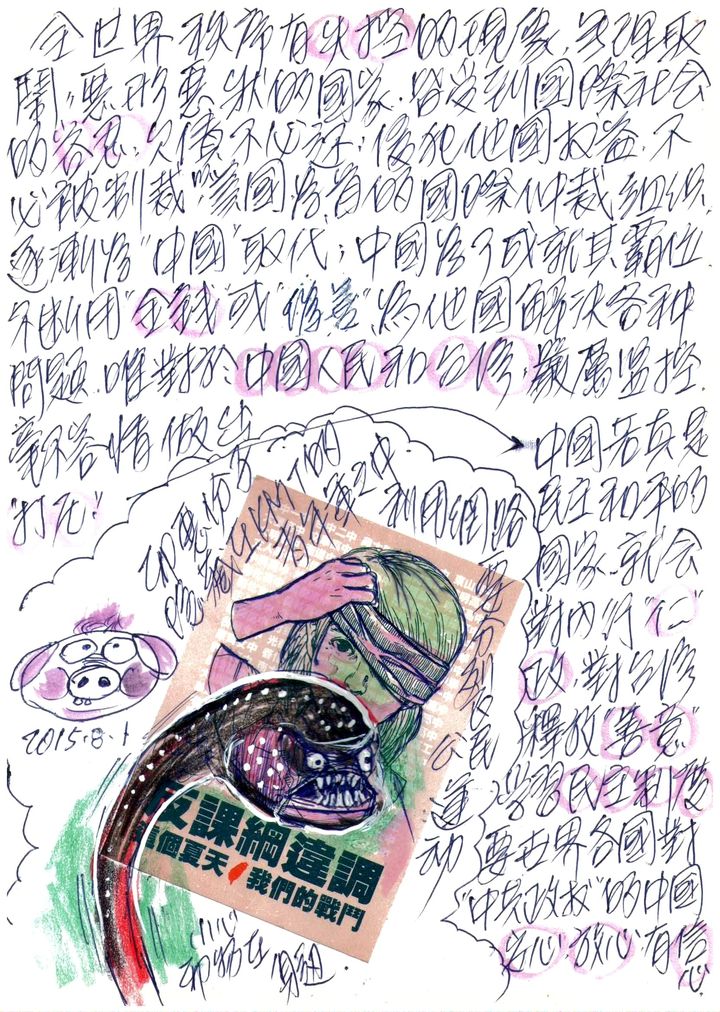 全世界秩序有失控的現象.無理取
鬧,惡形惡狀的國家.皆受到國際社会
的容忍.欠債不必还;侵犯他國权益.不
必被制裁"美國為首的國際仲裁組織.
逐漸為"中國"取代;中國為了成就其霸位.
不断用"金錢"或"偽善".為他國解決各种
問題.唯對於中國人民和台灣.嚴厲监控.
毫不容情做出
"打死!"
中國若真是
民主和平的
國家.就会
對內行"仁"
政.對台灣
釋放"善意"
學習民主制度
要世界各國對
"中共政权"的中國
安心.放心.有信
心.
利用網路
公民
運动
反課綱違調
這個夏天 我們的戰鬥
2015.8.1
小心
身边.